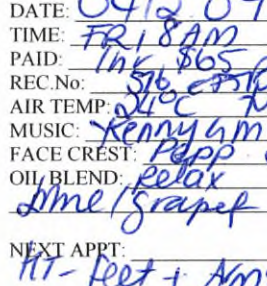 DATE: 04/2 09
TIME: FRI 8AM
PAID: 1hr $65
REC.No: 516
AIR TEMP: 24°C
MUSIC: Kenny G
FACE CREST: Pepp
OIL BLEND: Relax
lime/grapef
NEXT APPT:
HT - feet + Arms